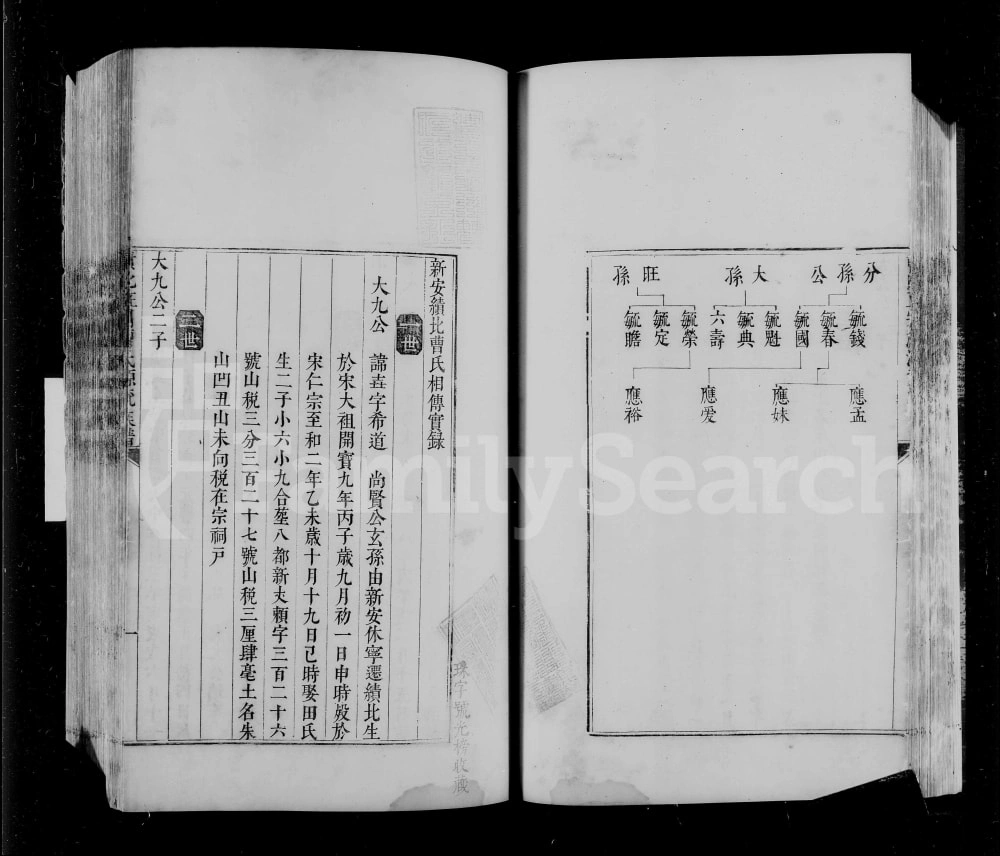 分
孫
公
大
孫
旺
孫
毓錢
毓春
毓國
毓魁
毓典
六壽
毓榮
毓定
毓瞻
應孟
應妹
應爱
應裕
新安績北曹氏相傳實録
二世
大九公
諱垚字希道 尚賢公玄孫由新安休寧遷績北生
於宋大祖開寶九年丙子歲九月初一日申時殁於
宋仁宗至和二年乙未歲十月十九日己時娶田氏
生二子小六小九合塟八都新丈頼字三百二十六
號山税三分三百二十七號山税三厘肆毫土名朱
山凹丑山未向税在宗祠戸
三世
大九公二子
一
號
收藏
FamilySearch